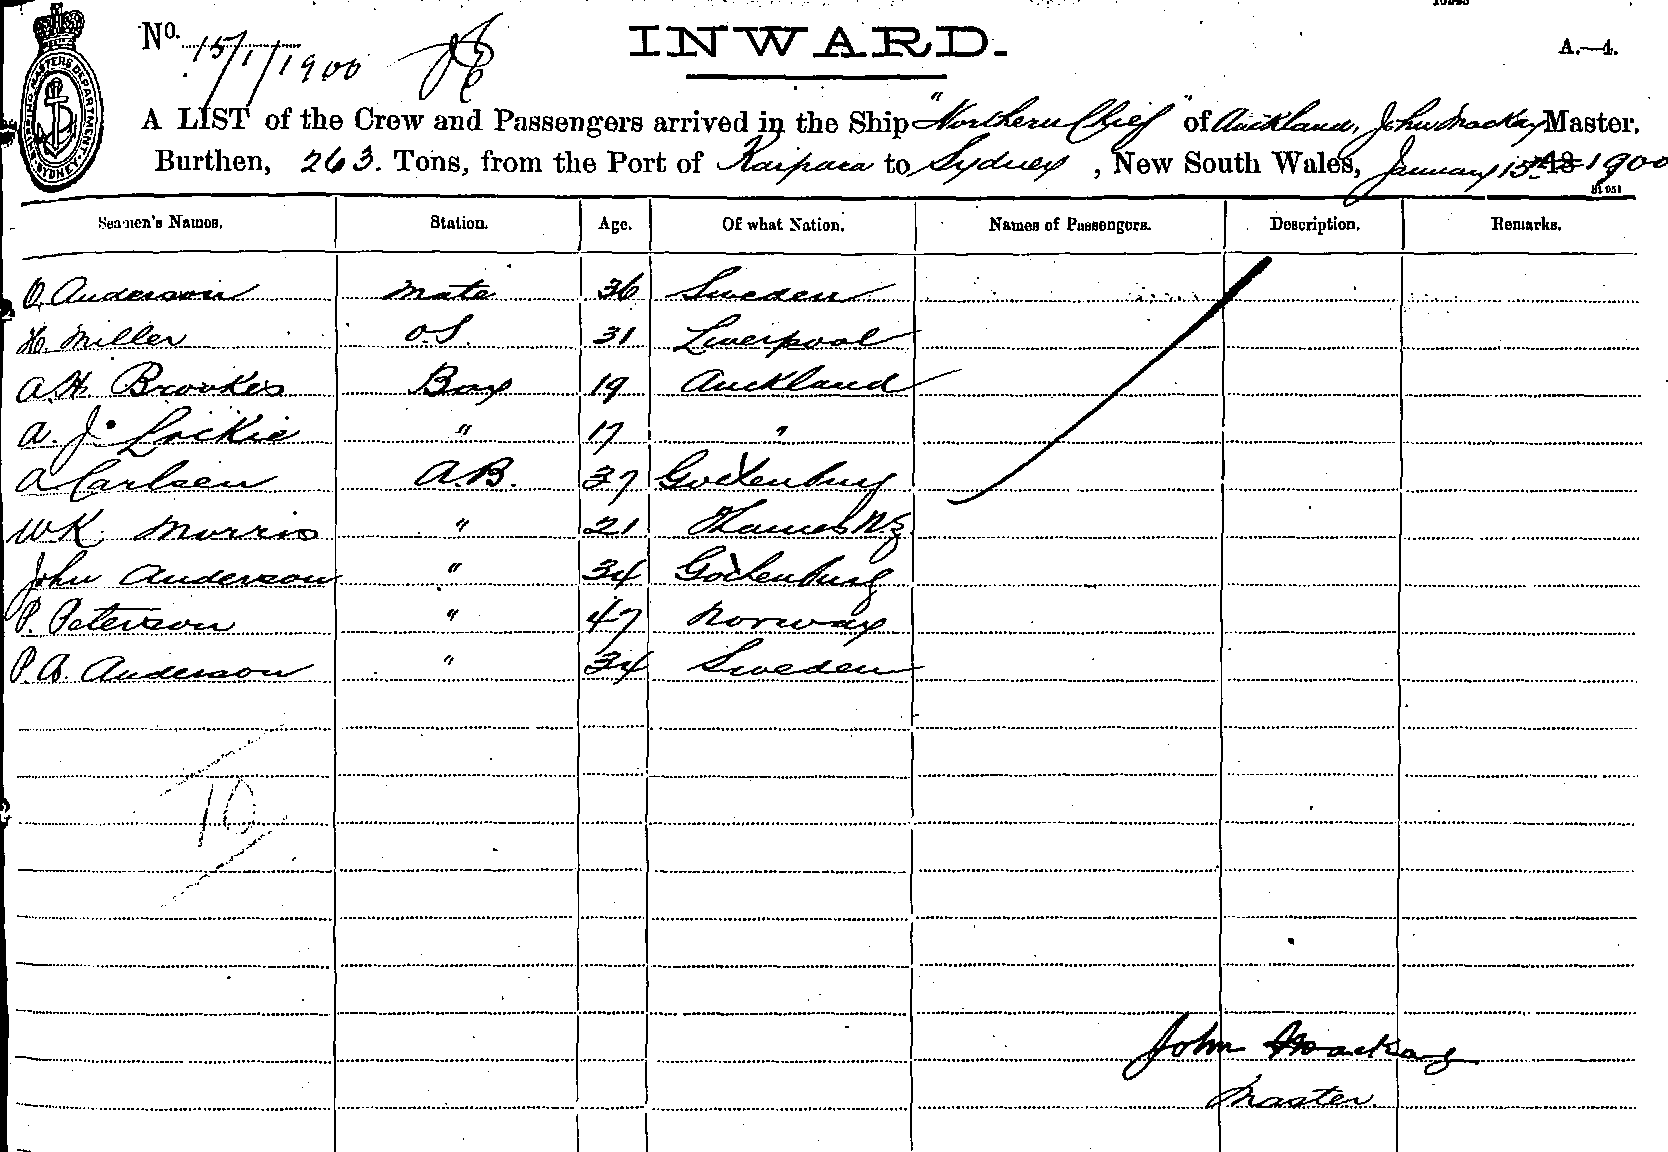 No. 15/1/1900
INWARD.
A.—4.
SHIPPING MASTERS DEPARTMENT SYDNEY
A LIST of the Crew and Passengers arrived in the Ship "Northern Chief" of Auckland, John Mackay Master,
Burthen, 263. Tons, from the Port of Kaipara to Sydney, New South Wales, January 15th 18 1900
Seamen's Names. Station. Age. Of what Nation. Names of Passengers. Description. Remarks.
O Anderson Mate 36 Sweden
H. Miller O.S. 31 Liverpool
A.H. Brookes Boy 19 Auckland
A. J. Lockie " 17 "
A Carlsen A.B. 37 Gothenburg
WK Morris " 21 Thames NZ
John Anderson " 34 Gothenburg
P. Peterson " 47 Norway
P.A. Anderson " 34 Sweden
10
John Mackay
Master.